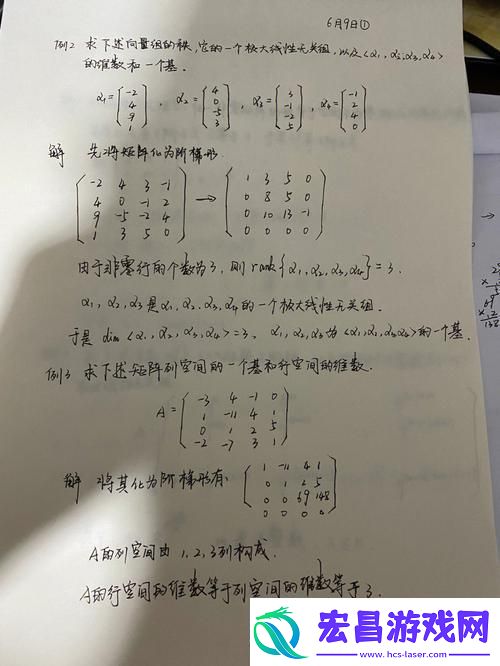 6月9日①
例2 求下述向量组的秩,它的一个极大线性无关组,以及<α1,α2,α3,α4>
的维数和一个基.
α1=[-2 4 9 1], α2=[4 0 -5 3], α3=[3 -1 -2 5], α4=[-1 2 4 0]
解 先将矩阵化为阶梯形.
-2 4 3 -1 → 1 3 5 0
4 0 -1 2 0 8 5 0
9 -5 -2 4 0 10 13 -1
1 3 5 0 0 0 0 0
由于非零行的个数为3, 则 rank{α1,α2,α3,α4}=3.
α1,α2,α3是α1,α2,α3,α4的一个极大线性无关组.
于是 dim<α1,α2,α3,α4>=3, α1,α2,α3为<α1,α2,α3,α4>的一个基.
例3 求下述矩阵列空间的一个基和行空间的维数.
A = -3 4 -1 0
1 -11 4 1
0 1 2 5
-2 -7 3 1
解 将其化为阶梯形有
1 -11 4 1
0 1 2 5
0 0 69 148
0 0 0 0
A的列空间由1,2,3列构成.
A的行空间的维数等于列空间的维数等于3.
宏昌游戏网
www.hcs-laser.com